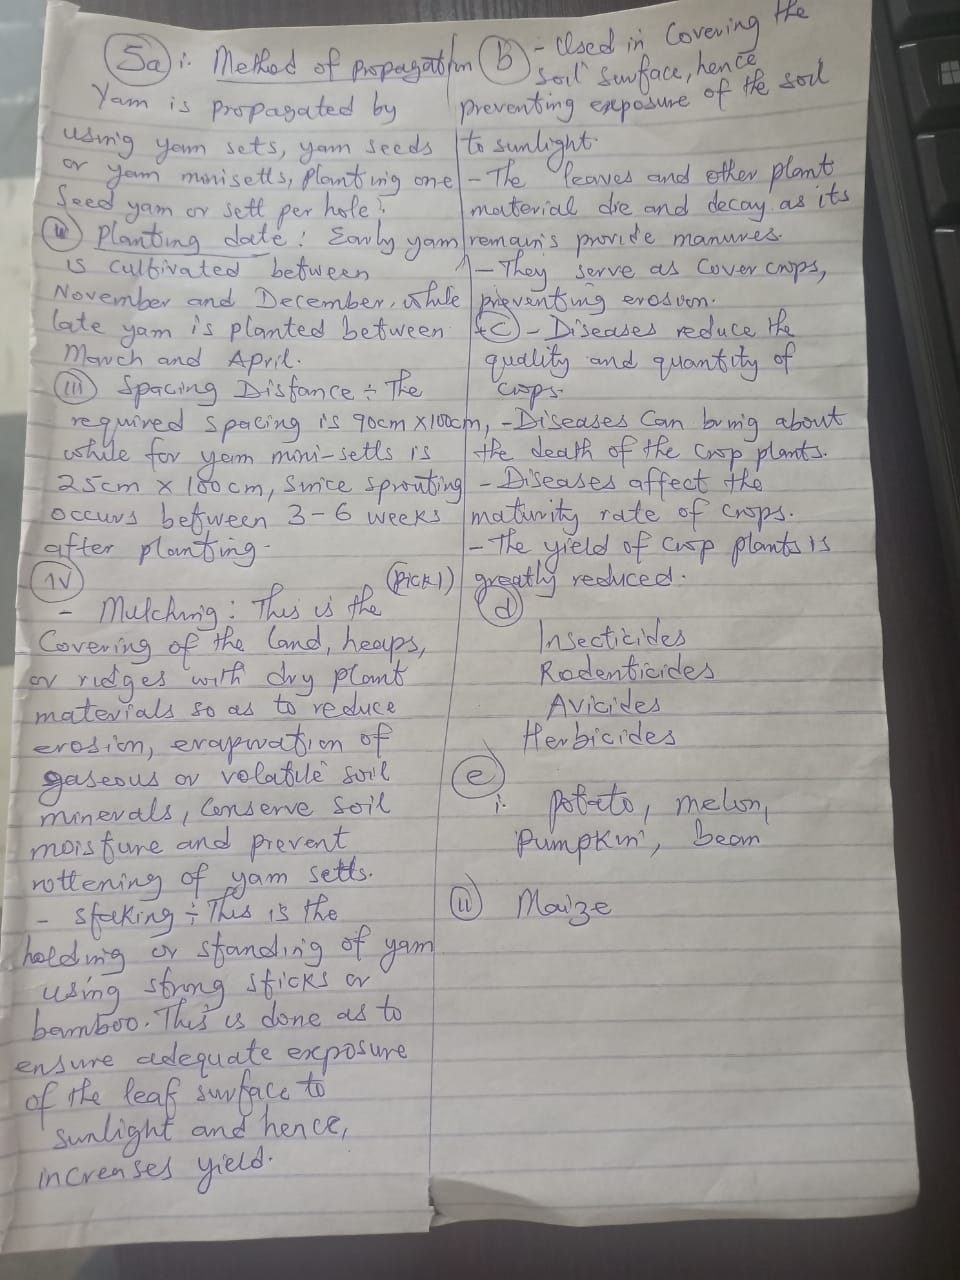 5a) i. Method of propagation
Yam is propagated by
using yam sets, yam seeds
or yam minisetts, planting one
Seed yam or sett per hole.
(ii) Planting date: Early yam
is cultivated between
November and December, while
late yam is planted between
March and April.
(iii) Spacing Distance ÷ The
required spacing is 90cm x 100cm,
while for yam mini-setts is
25cm x 100cm, Since sprouting
occurs between 3-6 weeks
after planting.
(iv) (Pick 1)
- Mulching: This is the
Covering of the land, heaps,
or ridges with dry plant
materials so as to reduce
erosion, evaporation of
gaseous or volatile soil
minerals, Conserve soil
moisture and prevent
rottening of yam setts.
- Staking ÷ This is the
holding or standing of yam
using strong sticks or
bamboo. This is done as to
ensure adequate exposure
of the leaf surface to
sunlight and hence,
increases yield.
(b) - Used in Covering the
soil surface, hence
preventing exposure of the soil
to sunlight.
- The leaves and other plant
material die and decay as its
remains provide manures.
- They serve as Cover crops,
preventing erosion.
(C) - Diseases reduce the
quality and quantity of
crops.
- Diseases Can bring about
the death of the crop plants.
- Diseases affect the
maturity rate of crops.
- The yield of crop plants is
greatly reduced.
(d)
Insecticides
Rodenticides
Avicides
Herbicides
(e)
i. potato, melon,
Pumpkin, bean
(ii) Maize